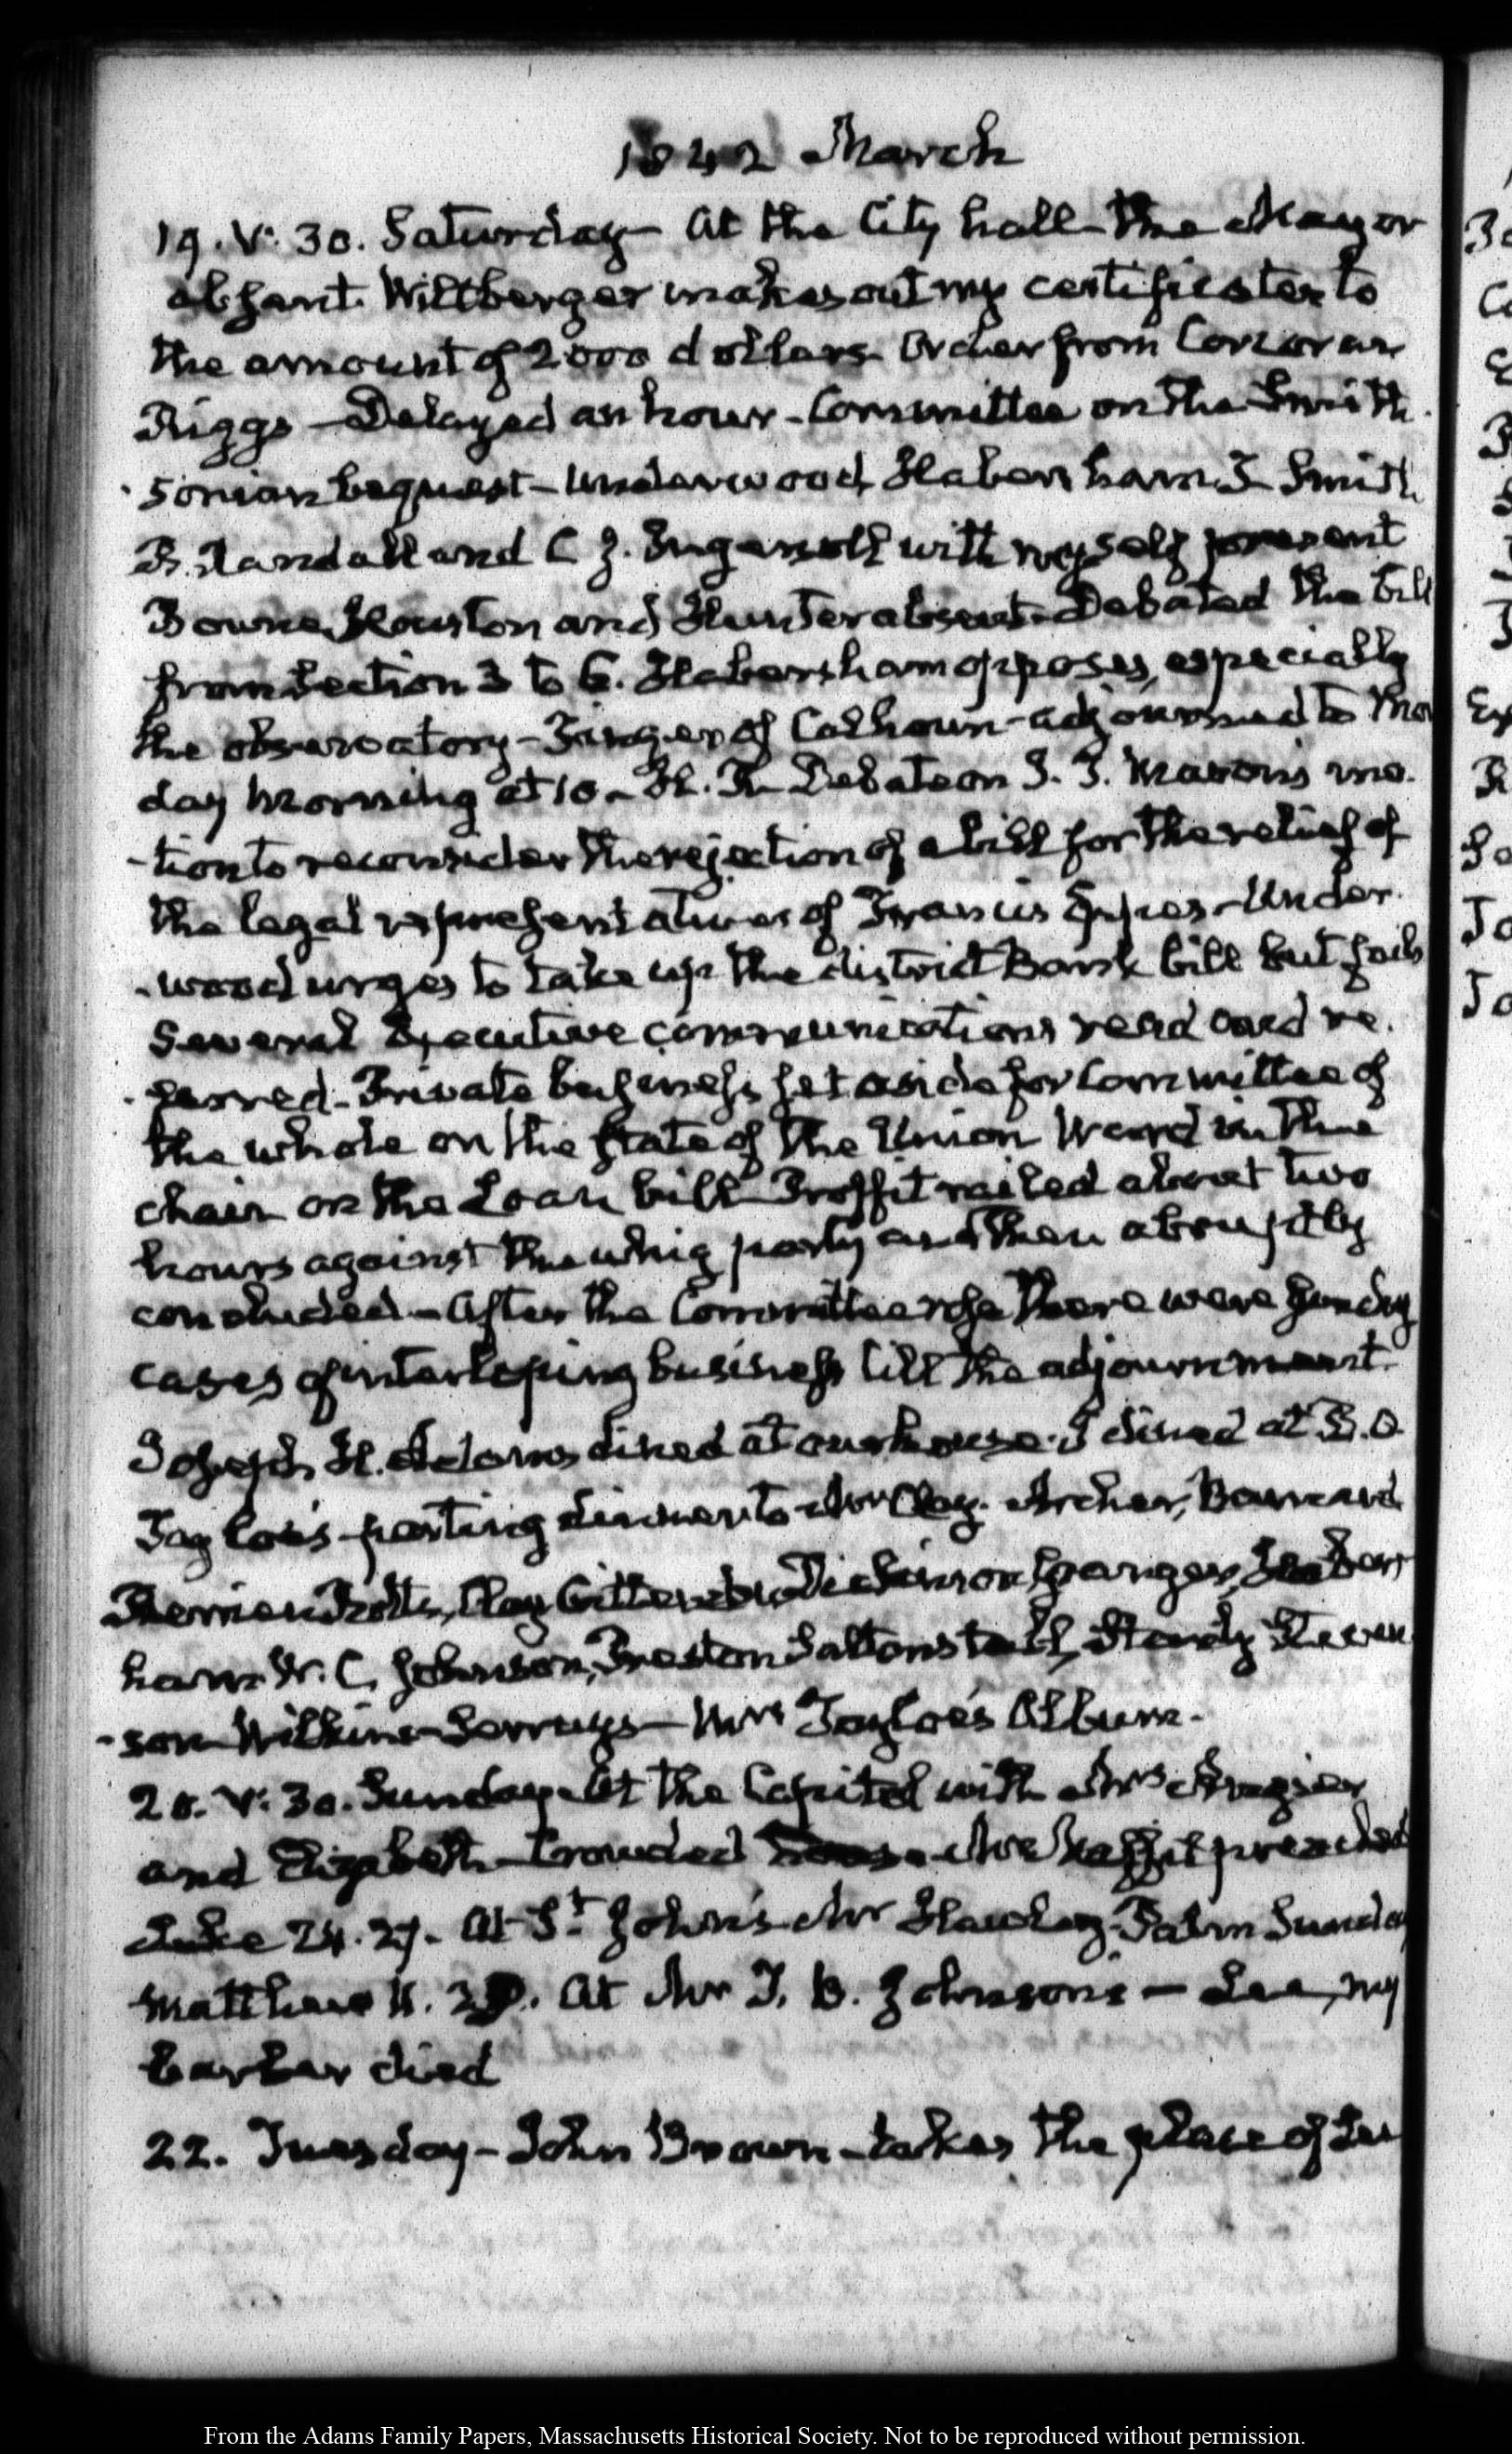 1842 March
19. V: 30. Saturday — At the City hall — the Mayor
absent. Wiltberger makes out my certificates to
the amount of 2000 dollars. Order from Corcoran
Riggs — Delayed an hour — Committee on the Smith
-sonian bequest — Underwood, Habersham, T Smith
B. Randall and C J. Ingersoll with myself present
Bowne, Houston and Hunter absent. Debated the bill
from Section 3 to 6. Habersham opposes, especially
the observatory — Finger of Calhoun — adjourned to Mon
day morning at 10 — H. R. Debate on J. T. Mason's mo-
-tion to reconsider the rejection of a bill for the relief of
the legal representatives of Francis Eppes — Under-
-wood urges to take up the district Bank bill but fails
Several Executive communications read and re-
-ferred — Private business set aside for Committee of
the whole on the state of the Union Ward in the
chair on the Loan bill — Proffit railed about two
hours against the whig party and then abruptly
concluded — After the Committee rose there were sundry
cases of interloping business till the adjournment.
Joseph H. Adams dined at our house. I dined at B. O.
Tayloe's parting dinner to Mr Clay. Archer, Barnard
Berrien, Botts, Clay, Crittenden, Granger, Habers
ham W. C. Johnson, Preston Saltonstall, Steven
-son Wilkins — Mrs Tayloe's Album.
20. V: 30. Sunday. At the Capitol with Mrs
and Elizabeth — Crowded Mr Maffit preached
Luke 24. 27. At St John's Mr Hawley — Palm Sunday
Matthew At Mr T. B. Johnson's — Lee, my
barber died
22. Tuesday — John Brown — takes the place of Lee
From the Adams Family Papers, Massachusetts Historical Society. Not to be reproduced without permission.